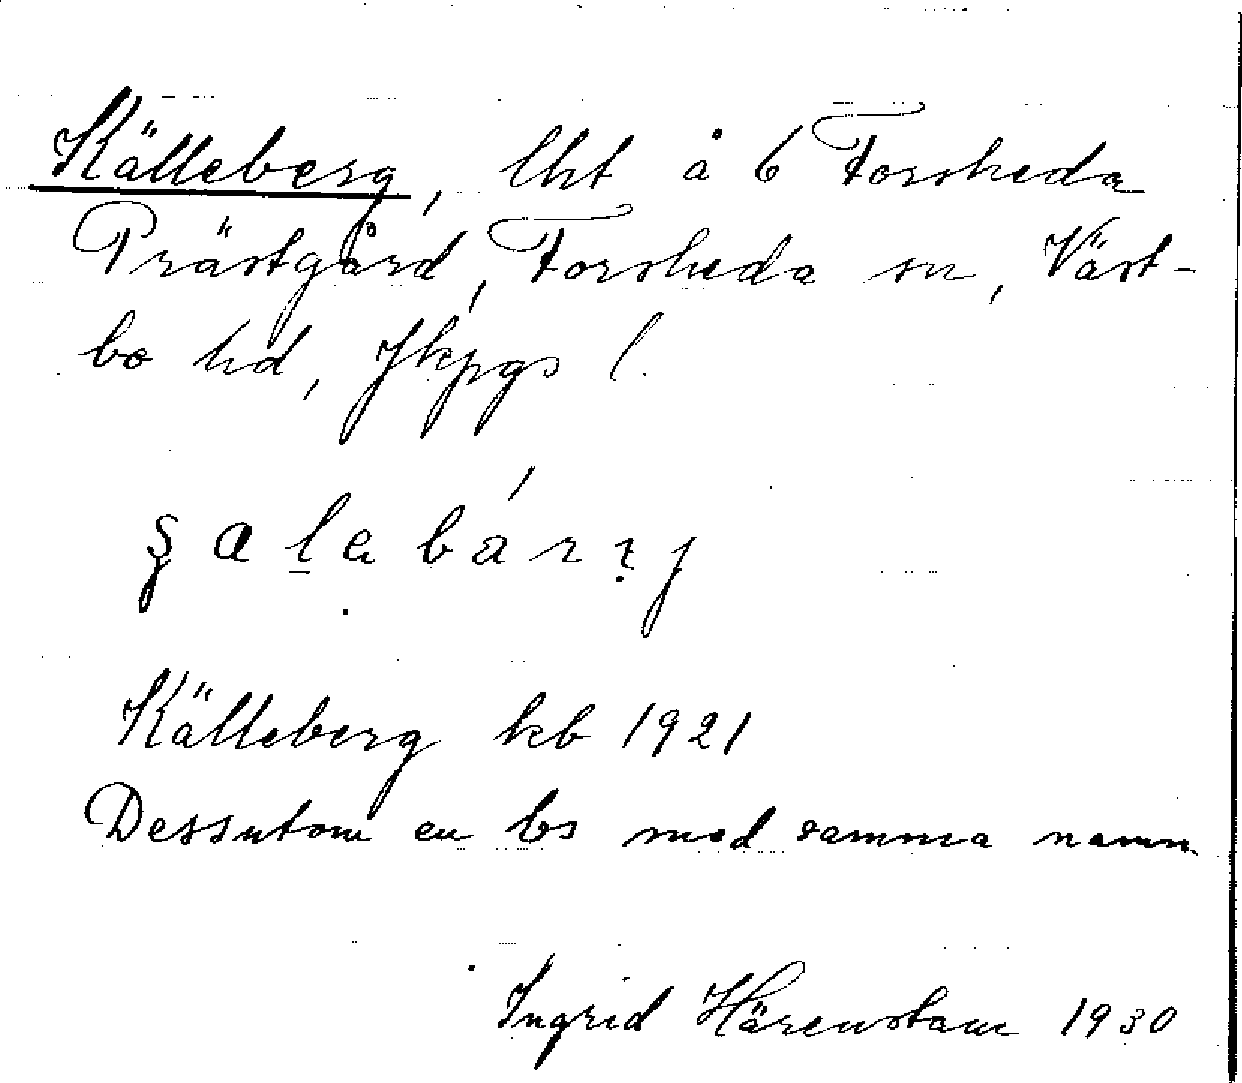 Källeberg, lht å 6 Forsheda
Prästgård, Forsheda sn, Väst-
bo hd, Jkpgs l.
Källeberg kb 1921
Dessutom en bs med samma namn.
Ingrid Härenstam 1930